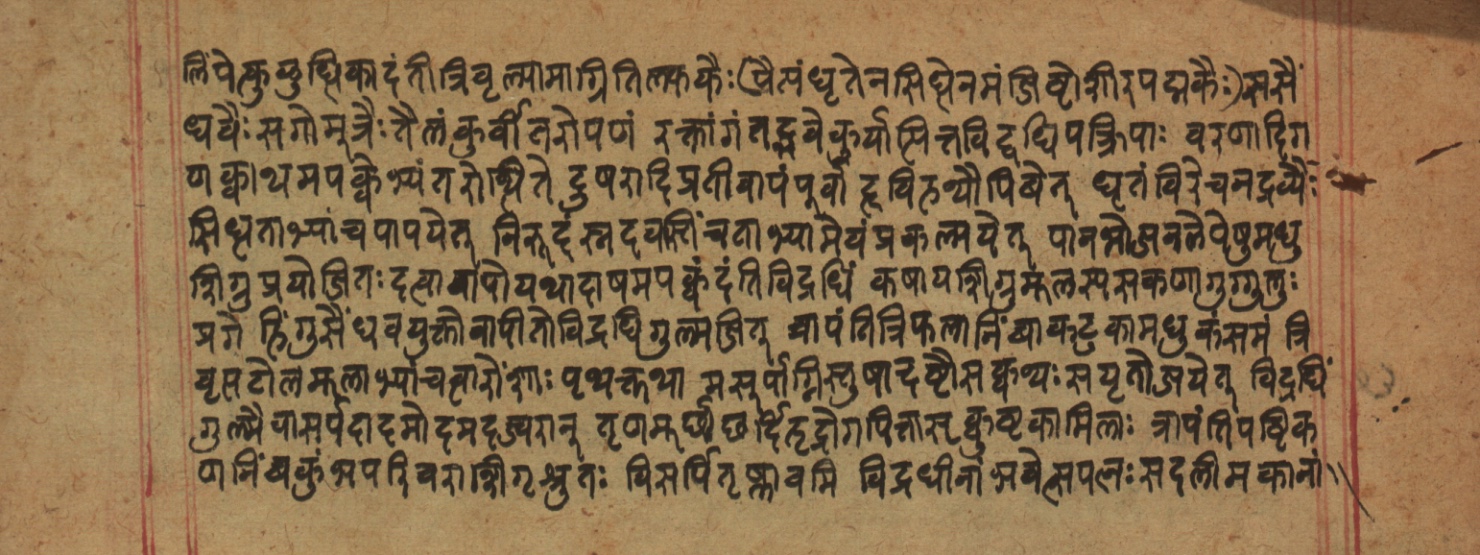 लिंपेत्कुयुष्धिकादंतीत्रिवृल्मामाग्नितिलकयैः(पैत्तंघृतेनसिद्धेनमंजिष्टोशीरपद्मकैः)ससैं
धवैः सगोमूत्रैः तैलं कुर्वीतरोपणं रक्तांगंतद्भवेकुर्यात्पित्तविद्रधिपक्रिपाः वरणादिग
णक्वाथमपक्वेभ्यंतरोत्थिते दुषरादिप्रतीवापंपूर्वा हृविरुथ्यौपिबेत् घृतंविरेचनद्रव्यैः
सिधृताभ्यांचपापयेत् निरूदंस्नदवस्तिंचताभ्यामेयंप्रकल्मयेत् पानभोजनलेपेषुमधु
शिग्रुप्रयोजितः दत्वावापोयथादाषमपक्वंदंतिविद्रधिं कषायशिग्रुमूलस्पसकणागुग्गुलुः
प्रगे हिंगुसैंधवयुक्तोवापीतोविद्रधिगुल्मजित् त्रापंतित्रिफलानिंबाकटुकामधुकंसमं त्रि
वृसटोलमूलाभ्यांचत्वारोंशाः पृथक्तथा मसूर्पाग्निस्तुषादष्टौसक्वथ्यः सघृतोजयेत् विद्रधिं
गुल्मवासर्पदादमोदमदज्वरान् तृणमूर्छाछर्दिहृद्रोगपित्तासृकुष्टकामिलाः त्रापंतिंपष्टिक
णनिंबकुंअपरिवराशिगृश्रुतः विसर्पितृष्णावमि विद्रधीनांभवेत्सपत्नः सदलीमकानां॥